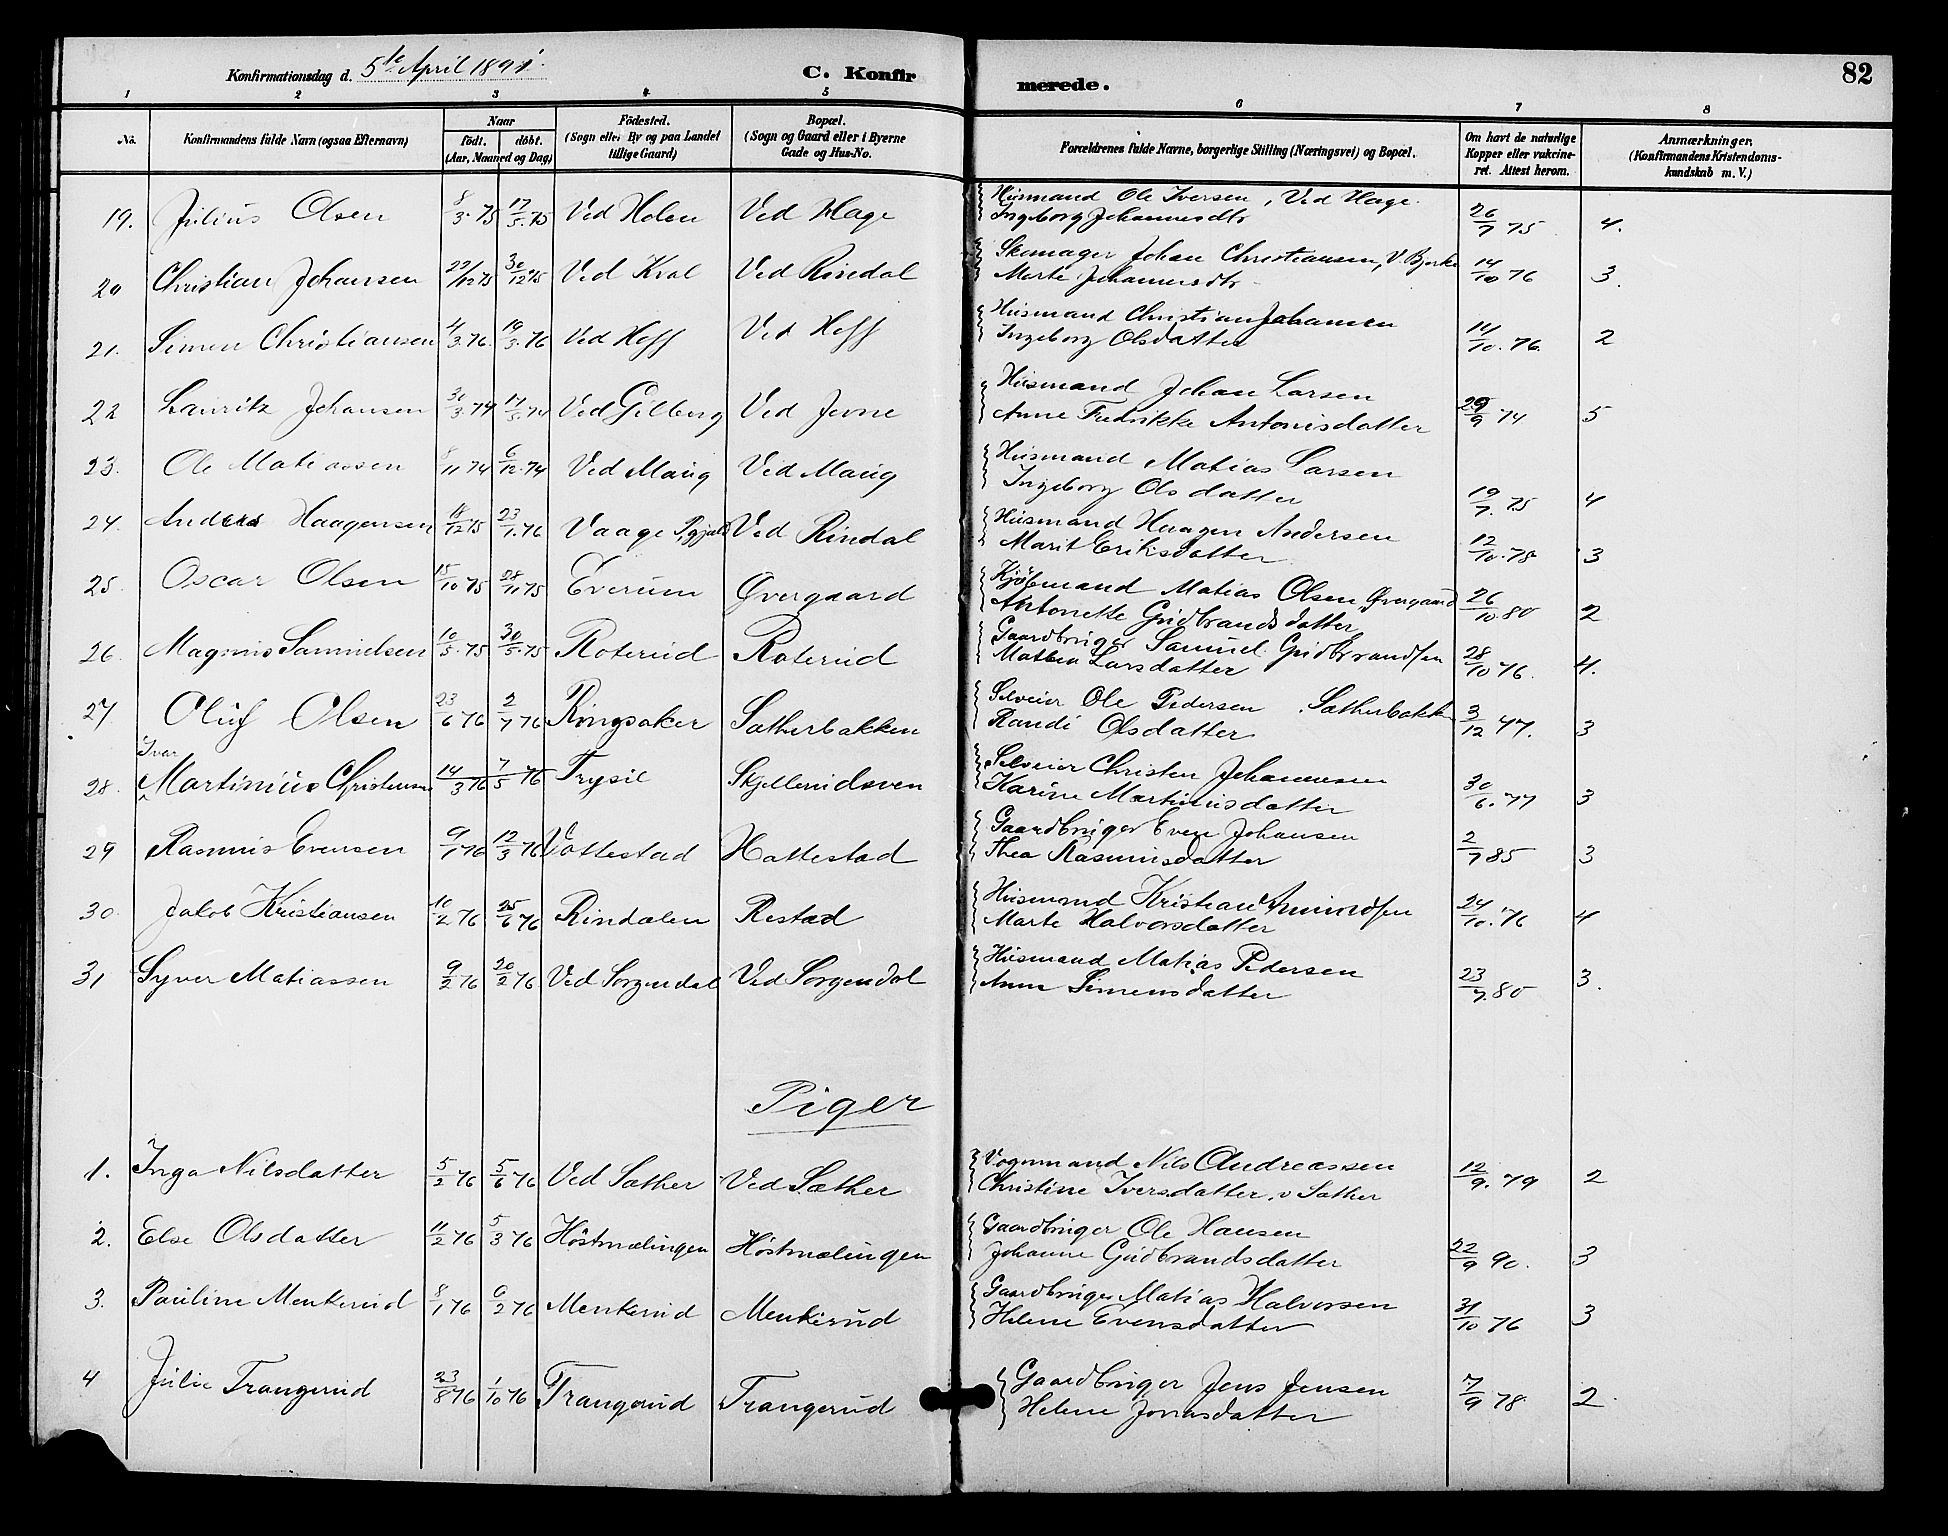 Konfirmationsdag d. 5te April 1891.
C. Konfir
merede.
82
1 2 3 4 5 6 7 8
No. Konfirmandens fulde Navn (ogsaa Efternavn) Naar födt. döbt. (Aar, Maaned og Dag) Födested. (Sogn eller By og paa Landet tillige Gaard) Bopæl. (Sogn og Gaard eller i Byerne Gade og Hus-No. Forældrenes fulde Navne, borgerlige Stilling (Næringsvei) og Bopæl. Om havt de naturlige Kopper eller vakcineret. Attest herom. Anmærkninger. (Konfirmandens Kristendomskundskab m. V.)
19. Julius Olsen 8/3.75 17/5.75 Ved Holen Ved Hage Husmand Ole Iversen, Ved Hage. Ingeborg Johannesdtr 26/7 75 4.
20 Christian Johansen 22/12 75 30/12 75 Ved Kval Ved Rindal Skomager Johan Christiansen, V. Bjerke Marte Johannesdtr 14/10 76 3.
21. Simen Christiansen 4/3.76. 19/3.76 Ved Hoff Ved Hoff Husmand Christian Johansen Ingeborg Olsdatter 11/10.76. 2
22 Lauritz Johansen 30/3.74 17/5.74 Ved Gilberg Ved Jevne Husmand Johan Larsen Anne Fredrikke Antonisdatter 29/9 74 5
23. Ole Matiassen 8/11 74 6/12.74 Ved Maug Ved Maug Husmand Matias Larsen Ingeborg Olsdatter 19/7.75 4
24. Anders Haagensen 18/12 75 23/1.76 Vaage Ved Rindal Husmand Haagen Andersen Marit Eriksdatter 12/10.78 3
25. Oscar Olsen 15/10 75 28/11 75 Everum Øvergaard Kjöbmand Matias Olsen Øvergaard Antonette Gudbrandsdatter 26/10 80 2
26. Magnus Samuelsen 10/5.75 30/5.75 Roterud Roterud Gaardbruger Samuel Gudbrandsen Mathea Larsdatter 28/10 76. 4.
27 Oluf Olsen 23/6 76 2/7 76 Ringsaker Sætherbakken Selveier Ole Pedersen Sætherbakken Randi Olsdatter 3/12 77. 3
28. Ivar Martinius Christensen 14/3 76 7/5 76 Trysil Skjellerudsven Selveier Christen Johannesen Karine Martinusdatter 30/6.77 3
29 Rasmus Evensen 9/1 76 12/3 76 Hattestad Gaardbruger Even Johansen Thea Rasmusdatter 2/7 85 3
30. Jakob Kristiansen 10/2 76 25/6 76 Rindalen Restad Husmand Kristian Amundsen Marte Halvorsdatter 24/10.76 4
31 Syver Matiassen 9/2 76 20/2 76 Ved Sorgendal Ved Sorgendal Husmand Matias Pedersen Anne Simensdatter 23/7.80 3.
Piger
1. Inga Nilsdatter 5/2 76 5/6 76 Ved Sæther Ved Sæther Vognmand Nils Andreassen Christine Iversdatter v Sæther 12/9.79 2
2. Else Olsdatter 11/2 76 5/3 76 Höstmælingen Höstmælingen Gaardbruger Ole Hansen Johanne Gudbrandsdatter 22/9 90. 3
3. Pauline Menkerud 8/1 76 6/2 76 Menkerud Menkerud Gaardbruger Matias Halvorsen Helene Evensdatter 31/10 76 3
4 Julie Trangerud 23/8 76 1/10 76 Trangerud Trangerud Gaardbruger Jens Jensen Helene Jonasdatter 7/9 78 2.